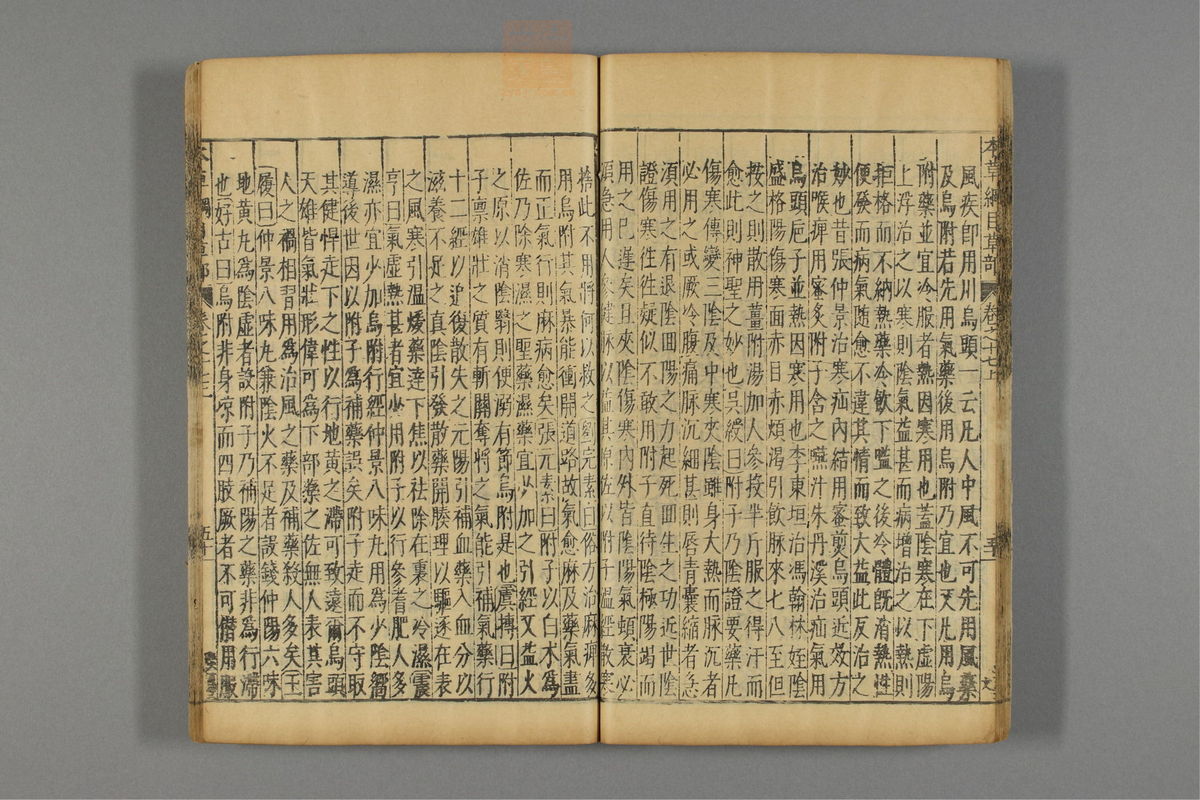 本草綱目草部 卷之十七上
風疾卽用川烏頭一云凡人中風不可先用風藥
及烏附若先用氣藥後用烏附乃宜也又凡用烏
附藥並宜冷服者熱因寒用也蓋陰寒在下虛陽
上浮治之以寒則陰氣益甚而病增治之以熱則
拒格而不納熱藥冷飲下嗌之後冷體旣消熱性
便發而病氣隨愈不違其情而致大益此反治之
妙也昔張仲景治寒疝內結用蜜煎烏頭近效方
治喉痺用蜜炙附子含之嚥汁朱丹溪治疝氣用
烏頭巵子並熱因寒用也李東垣治馮翰林姪陰
盛格陽傷寒面赤目赤煩渴引飲脉來七八至但
按之則散用薑附湯加人參投半斤服之得汗而
愈此則神聖之妙也吳綬曰附子乃陰證要藥凡
傷寒傳變三陰及中寒夾陰雖身大熱而脉沉者
必用之或厥冷腹痛脉沉細甚則唇青囊縮者急
須用之有退陰囬陽之力起死囬生之功近世陰
證傷寒徃徃疑似不敢用附子直待陰極陽竭而
用之已遲矣且夾陰傷寒內外皆陰陽氣頓衰必
須急用人參健脉以益其原佐以附子溫經散寒
捨此不用將何以救之劉完素曰俗方治麻痺多
用烏附其氣暴能衝開道路故氣愈麻及藥氣盡
而正氣行則麻病愈矣張元素曰附子以白朮爲
佐乃除寒濕之聖藥濕藥宜少加之引經又益火
之原以消陰翳則便溺有節烏附是也虞摶曰附
子禀雄壯之質有斬關奪將之氣能引補氣藥行
十二經以追復散失之元陽引補血藥入血分以
滋養不足之眞陰引發散藥開腠理以驅逐在表
之風寒引溫煖藥達下焦以祛除在裏之冷濕震
亨曰氣虛熱甚者宜少用附子以行參耆肥人多
濕亦宜少加烏附行經仲景八味丸用爲少陰嚮
導後世因以附子爲補藥誤矣附子走而不守取
其健悍走下之性以行地黃之滯可致遠爾烏頭
天雄皆氣壯形偉可爲下部藥之佐無人表其害
人之禍相習用爲治風之藥及補藥殺人多矣王
履曰仲景八味丸兼陰火不足者設錢仲陽六味
地黃丸爲陰虛者設附子乃補陽之藥非爲行滯
也好古曰烏附非身凉而四肢厥者不可僣用服